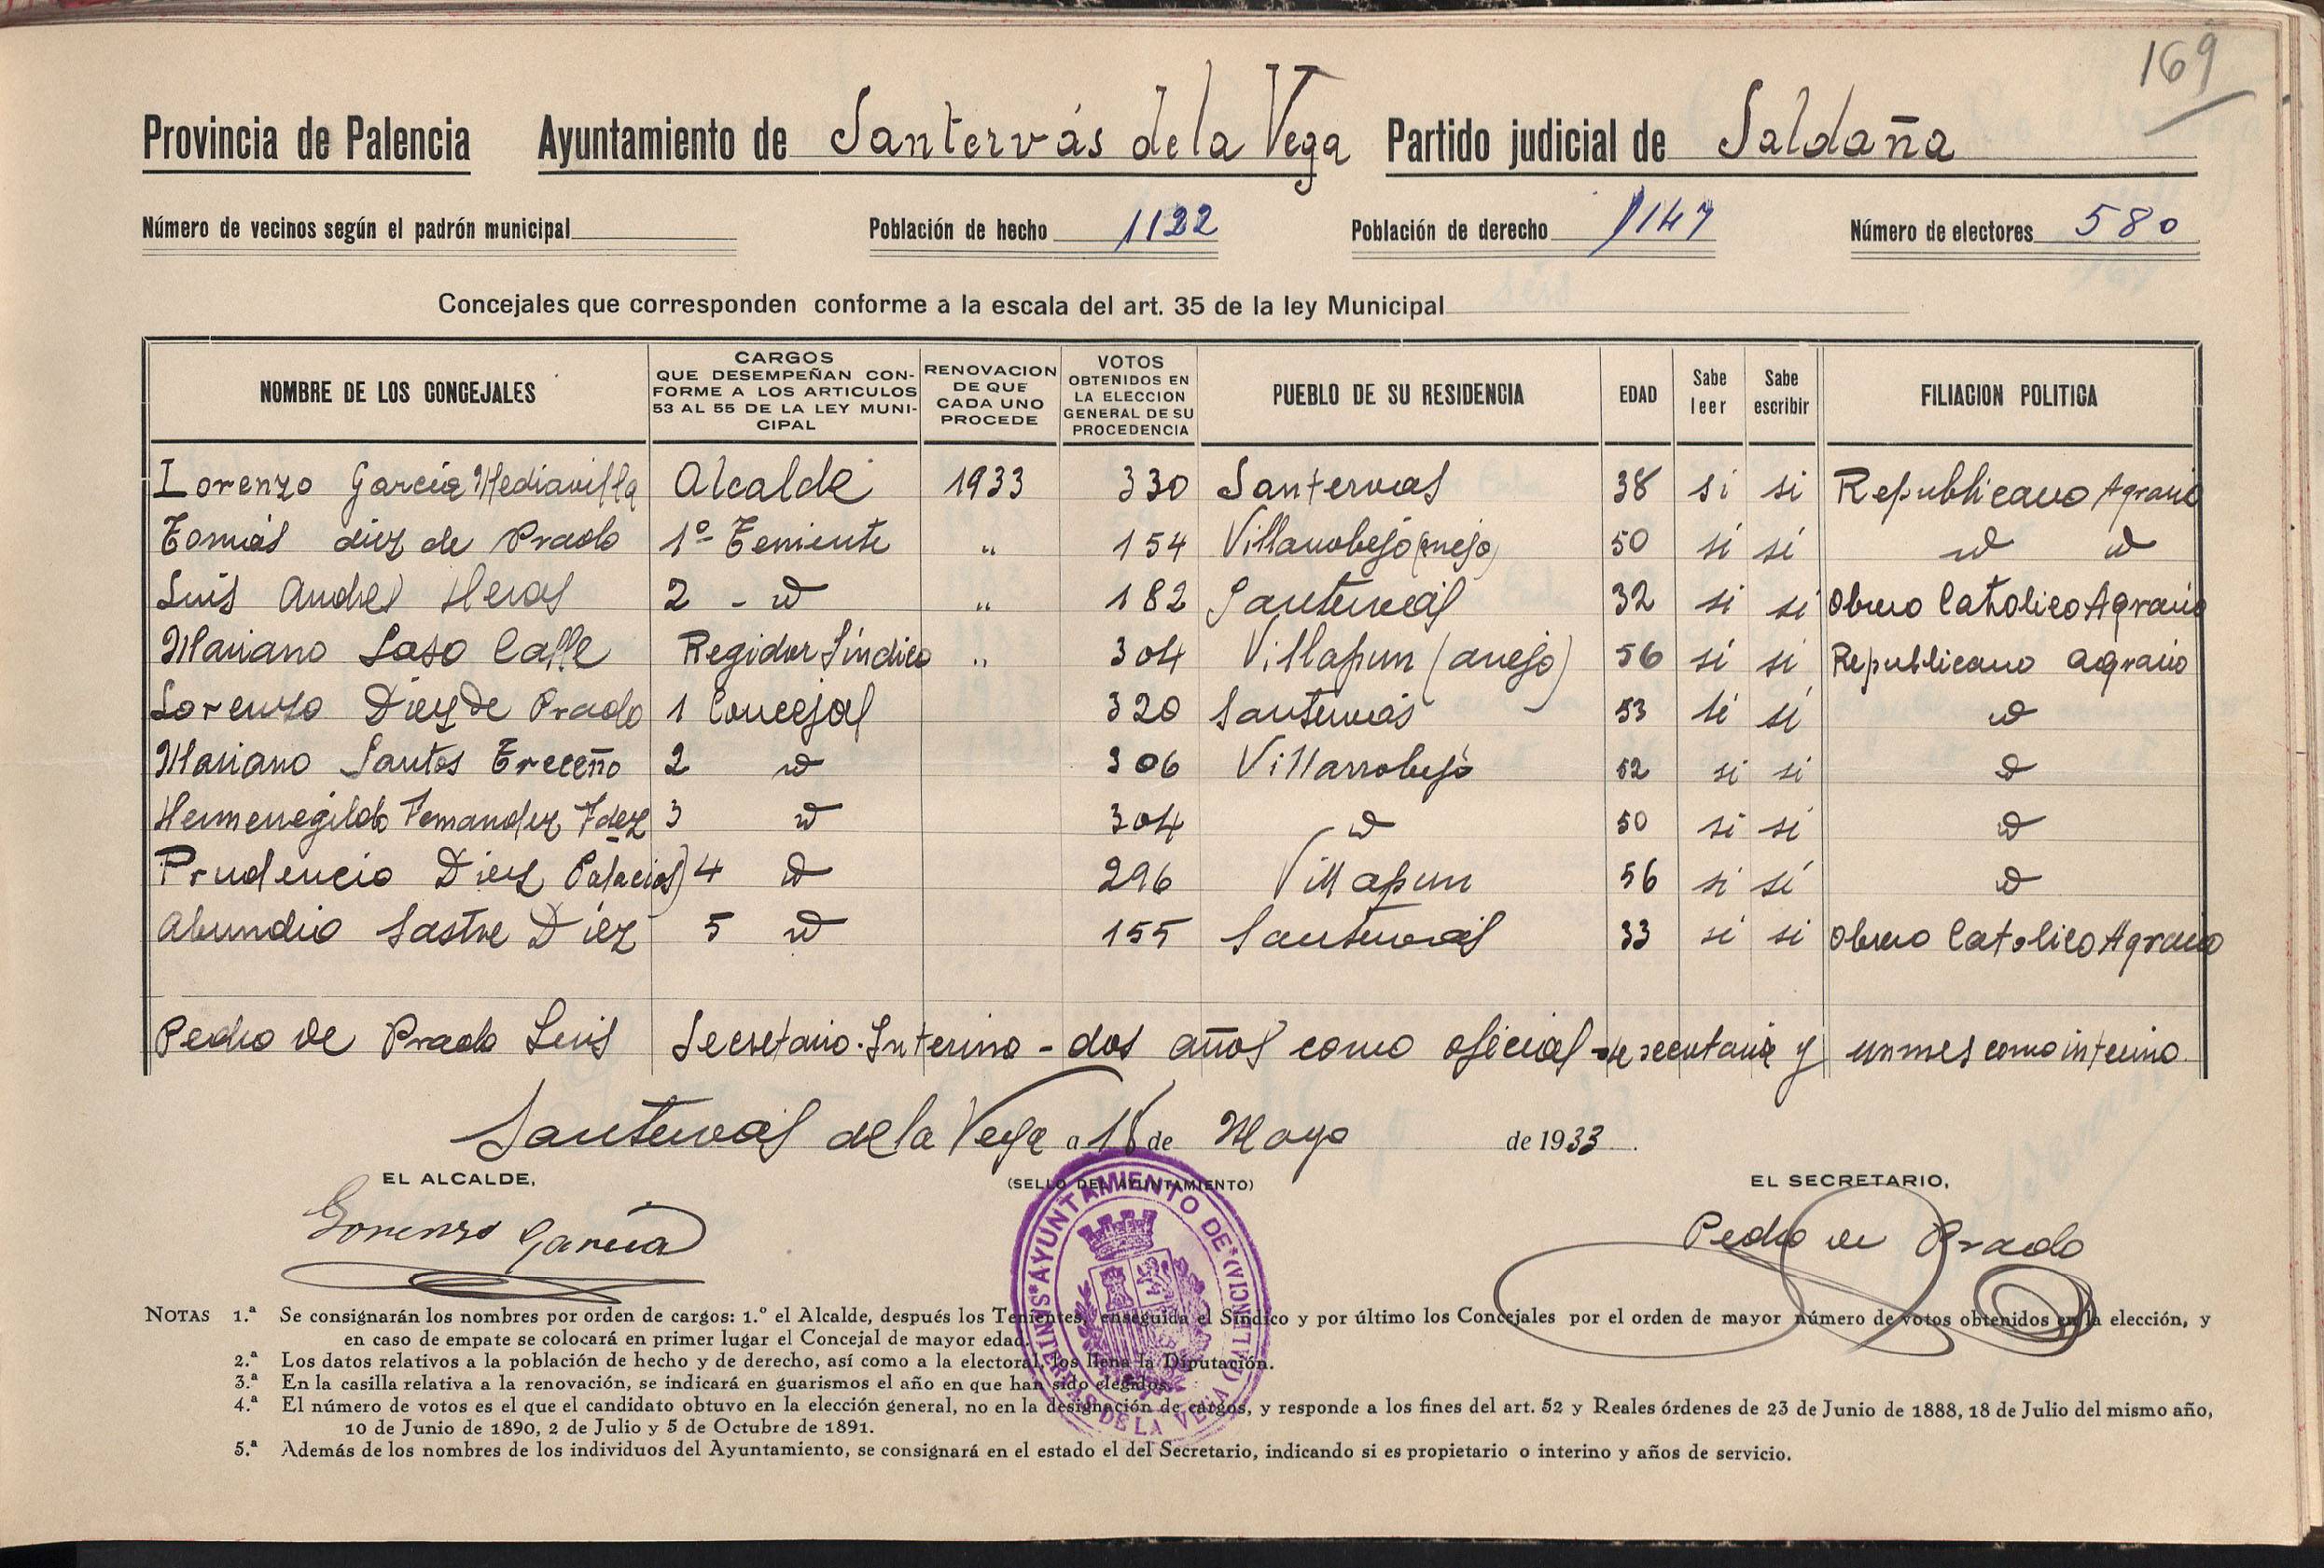 169
Provincia de Palencia Ayuntamiento de Santervás de la Vega Partido judicial de Saldaña
Número de vecinos según el padrón municipal Población de hecho 1122 Población de derecho 1147 Número de electores 580
Concejales que corresponden conforme a la escala del art. 35 de la ley Municipal
NOMBRE DE LOS CONCEJALES CARGOS QUE DESEMPEÑAN CONFORME A LOS ARTICULOS 53 AL 55 DE LA LEY MUNICIPAL RENOVACION DE QUE CADA UNO PROCEDE VOTOS OBTENIDOS EN LA ELECCION GENERAL DE SU PROCEDENCIA PUEBLO DE SU RESIDENCIA EDAD Sabe leer Sabe escribir FILIACION POLITICA
Lorenzo García Mediavilla Alcalde 1933 330 Santervas 38 si si Republicano Agrario
Tomás diez de Prado 1º Teniente " 154 Villarrobejo (anejo) 50 si si id id
Luis Andres Heras 2 - id " 182 Santervás 32 si si Obrero Catolico Agrario
Mariano Laso Calle Regidor Síndico " 304 Villapun (anejo) 56 si si Republicano agrario
Lorenzo Diez de Prado 1 Concejal 320 Santervás 53 si si id
Mariano Santos Treceño 2 id 306 Villarrobejo 52 si si id
Hermenegildo Fernandez Fdez 3 id 304 id 50 si si id
Prudencio Diez Palacios 4 id 296 Villapun 56 si si id
Abundio Sastre Diez 5 id 155 Santervás 33 si si Obrero Catolico Agrario
Pedro de Prado Luis Secretario-Interino - dos años como oficial de secretaria y un mes como interino
Santervás de la Vega a de Mayo de 1933
EL ALCALDE, (SELLO DEL AYUNTAMIENTO) EL SECRETARIO,
Lorenzo García Pedro de Prado
AYUNTAMIENTO DE SANTERVAS DE LA VEGA (PALENCIA)
NOTAS 1.ª Se consignarán los nombres por orden de cargos: 1.º el Alcalde, después los Tenientes, enseguida el Síndico y por último los Concejales por el orden de mayor número de votos obtenidos en la elección, y
en caso de empate se colocará en primer lugar el Concejal de mayor edad.
2.ª Los datos relativos a la población de hecho y de derecho, así como a la electoral, los llena la Diputación.
3.ª En la casilla relativa a la renovación, se indicará en guarismos el año en que han sido elegidos.
4.ª El número de votos es el que el candidato obtuvo en la elección general, no en la designación de cargos, y responde a los fines del art. 52 y Reales órdenes de 23 de Junio de 1888, 18 de Julio del mismo año,
10 de Junio de 1890, 2 de Julio y 5 de Octubre de 1891.
5.ª Además de los nombres de los individuos del Ayuntamiento, se consignará en el estado el del Secretario, indicando si es propietario o interino y años de servicio.